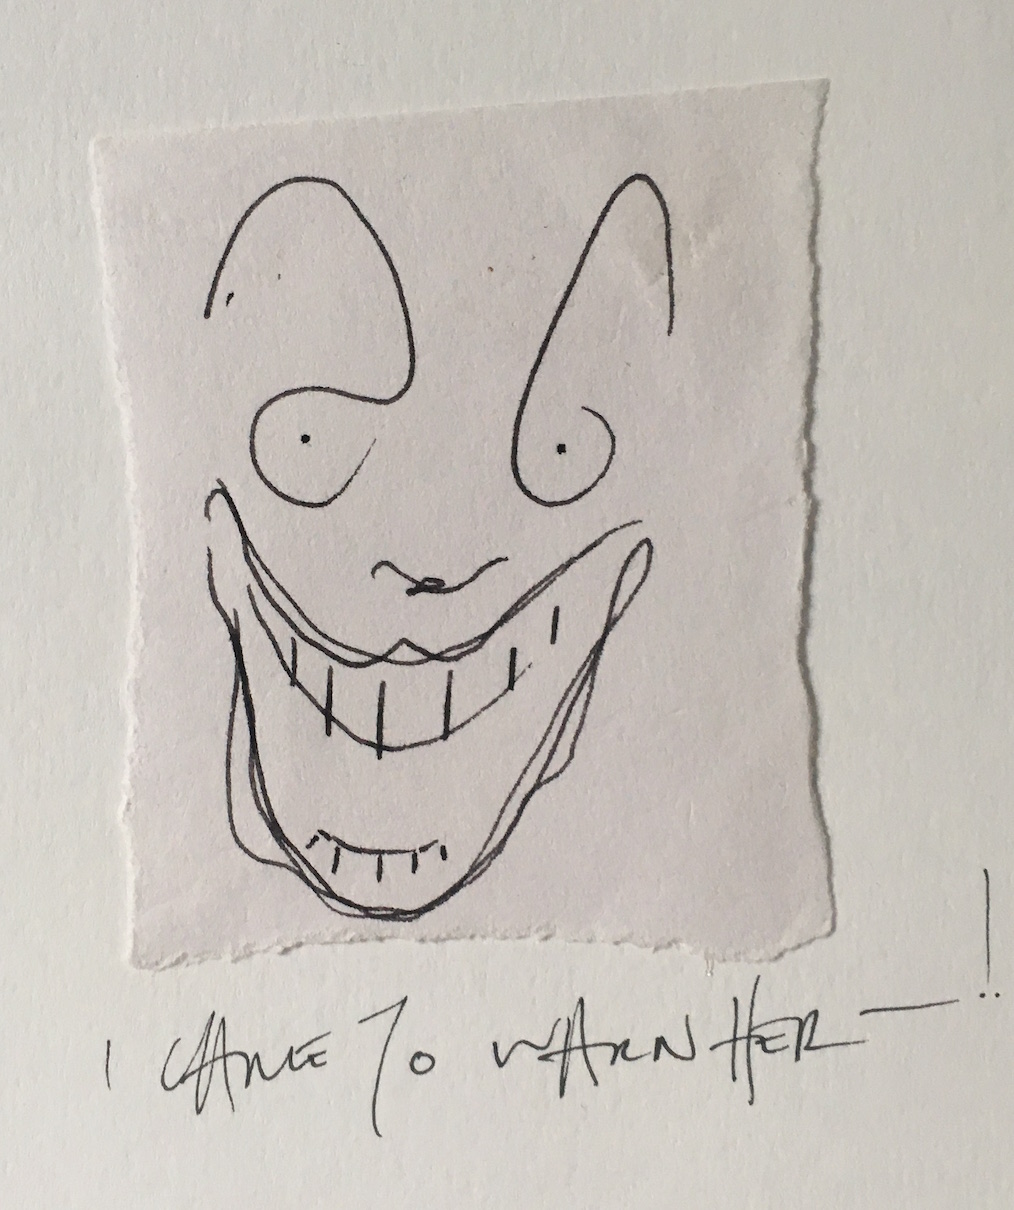 I CAME TO WARN HER — !